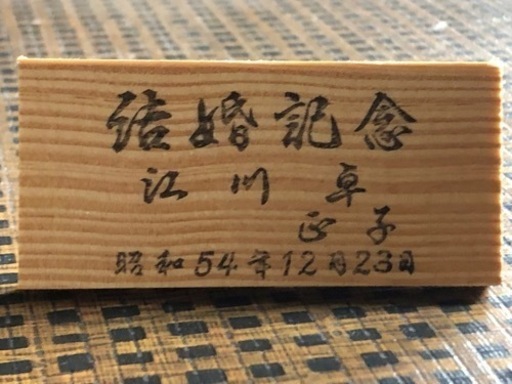 結婚記念
江川 卓
正子
昭和54年12月23日